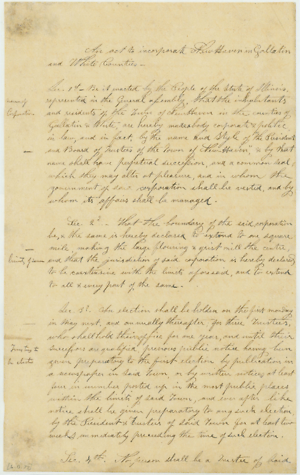 An act to incorporate New Haven in Gallatin
and White Counties.
Sec. 1st. Be it enacted by the People of the State of Illinois,
represented in the General Assembly, That the inhabitants
and residents of the Town of New Haven in the counties of
Gallatin & White, are hereby made a body corporate & politic
in law, and in fact, by the name and Style of the President
and Board of Trustees of the Town of New Haven; & by that
name shall have perpetual succession, and a common seal,
which they may alter at pleasure, and in whom the
government of said corporation shall be vested, and by
whom its affairs shall be managed.
Sec. 2d. That the boundary of the said corporation
be, & the same is hereby declared to extend to one square
mile, making the large flouring & grist mill the centre,
and that the jurisdiction of said corporation is hereby declared
to be coextensive with the limits aforesaid, and to extend
to all & every part of the same.
Sec. 3d. An election shall be holden on the first monday
in May next, and annually thereafter for three Trustees,
who shall hold their offices for one year, and until their
successors are qualified, previous public notice having been
given preparatory to the first election, by publication in
a newspaper in said Town, or by written notices, at least
four in number posted up in the most public places
within the limits of said Town, and ever after like
notice shall be given preparatory to any such election
by the President & Trustees of said Town for at least two
weeks, immediately preceding the time of such election.
Sec. 4th. No person shall be a trustee of said